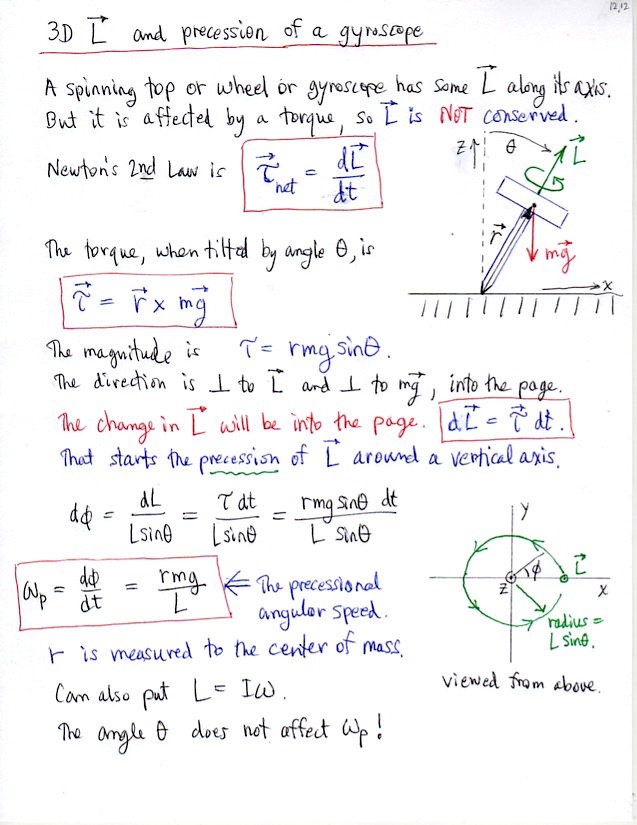 12.12
3D L⃗ and precession of a gyroscope
A spinning top or wheel or gyroscope has some L⃗ along its axis.
But it is affected by a torque, so L⃗ is NOT conserved.
Newton's 2nd Law is τ⃗net = dL⃗/dt
z θ L⃗
r⃗ mg⃗
x
The torque, when tilted by angle θ, is
τ⃗ = r⃗ x mg⃗
The magnitude is τ = rmg sinθ.
The direction is ⊥ to L⃗ and ⊥ to mg⃗, into the page.
The change in L⃗ will be into the page. dL⃗ = τ⃗ dt.
That starts the precession of L⃗ around a vertical axis.
dφ = dL/L sinθ = τ dt/L sinθ = rmg sinθ dt/L sinθ
ωp = dφ/dt = rmg/L ⇐ The precessional
angular speed.
y
φ L⃗
z x
radius =
L sinθ.
viewed from above.
r is measured to the center of mass.
Can also put L = Iω.
The angle θ does not affect ωp!